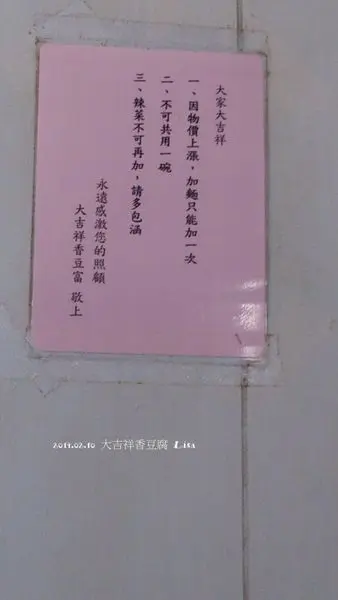 大家大吉祥
一、因物價上漲，加麵只能加一次
二、不可共用一碗
三、辣菜不可再加，請多包涵
永遠感激您的照顧
大吉祥香豆富 敬上
2014.02.10 大吉祥香豆腐 Lisa